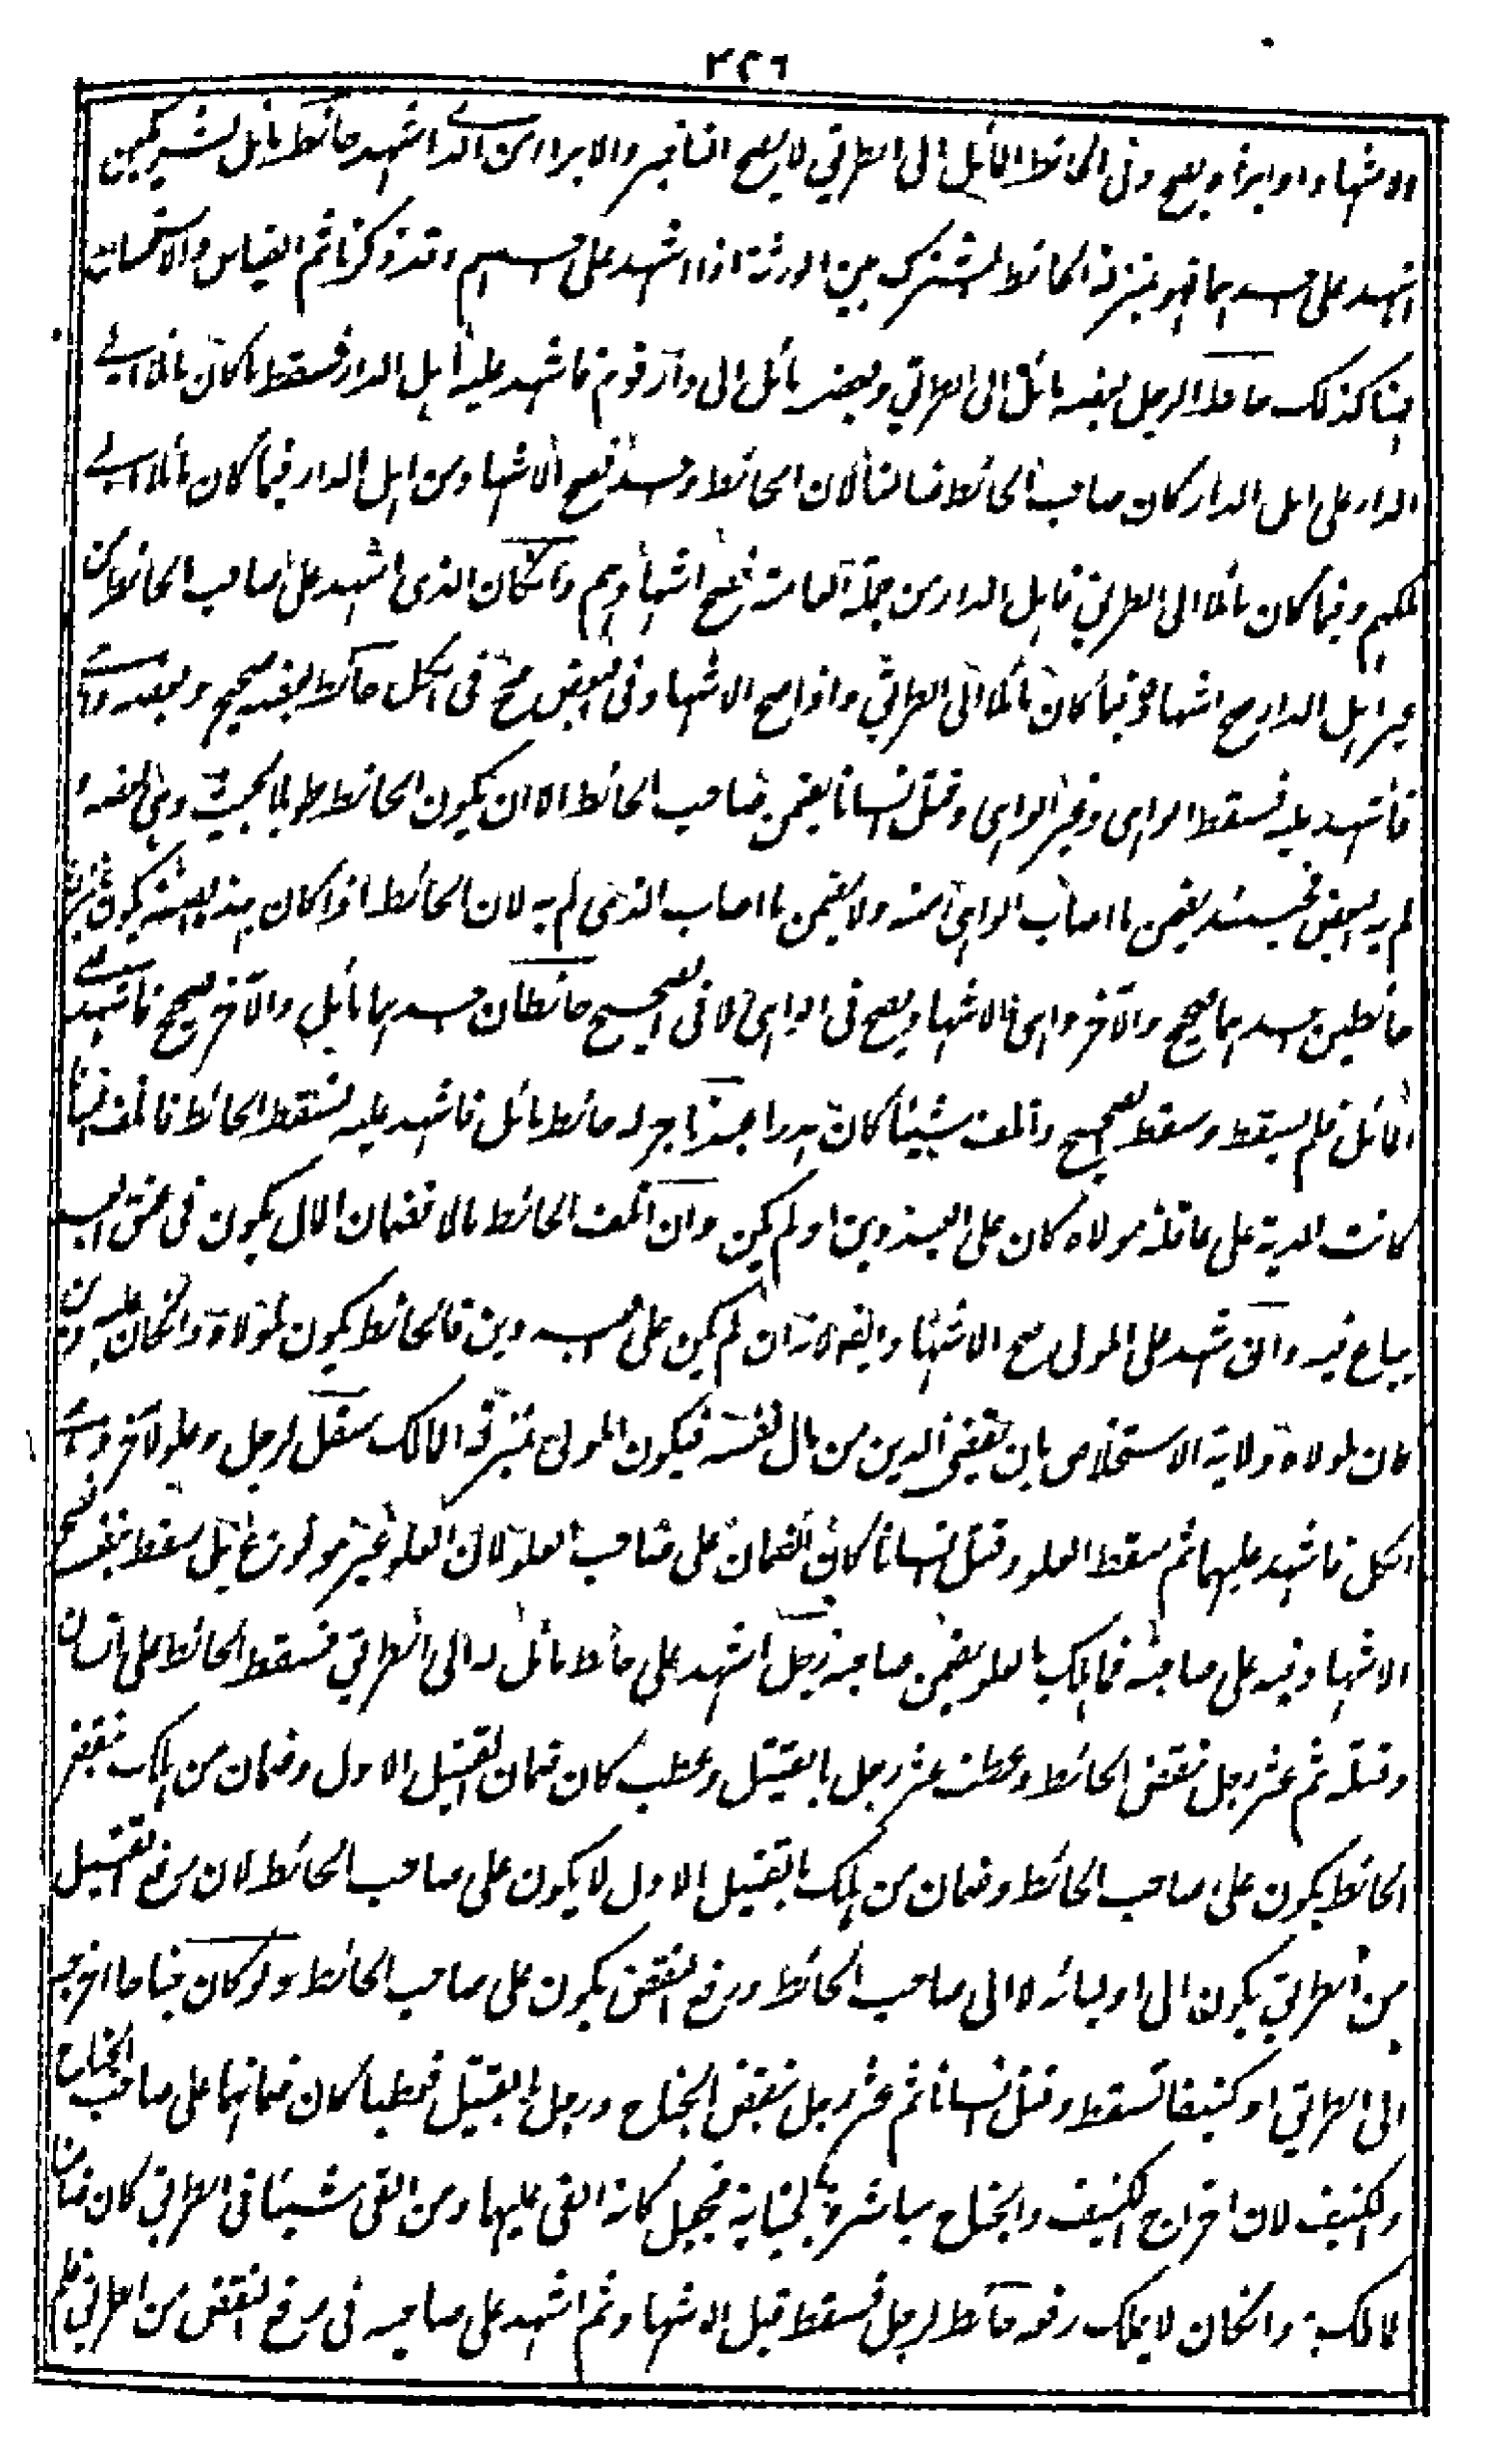 ٣٢٦
الاشهاد او ابراؤه يصح وفى الحائط المائل الى الطريق لا يصح التاخير والابراء من الذى اشهد حائط مائل لشريكين
اشهد على احدهما فهو بمنزلة الحائط المشترك بين الورثة اذا اشهد على احدهم وقد ذكرنا ثم القياس والاستحسان
هنا كذلك حائط الرجل بعضه مائل الى الطريق وبعضه مائل الى دار قوم فاشهد عليه اهل الدار فسقط ما كان مائلا الى
الدار على اهل الدار كان صاحب الحائط ضامنا لان الحائط واحد فصح الاشهاد من اهل الدار فيما كان مائلا الى
ملكهم وفيما كان مائلا الى الطريق فاهل الدار من جملة العامة فصح اشهادهم وانكان الذى اشهد على صاحب الحائط من
غير اهل الدار صح اشهاده فيما كان مائلا الى الطريق واذا صح الاشهاد فى البعض صح فى الكل حائط بعضه صحيح وبعضه واهى
فاشهد عليه فسقط الواهى وغير الواهى وقتل انسانا يضمن صاحب الحائط الا ان يكون الحائط طويلا بحيث وهى بعضه و
لم يه البعض فحينئذ يضمن ما اصاب الواهى منه ولا يضمن ما اصاب الذى لم يه لان الحائط اذا كان بهذه الصفة يكون بمنزلة
حائطين احدهما صحيح والآخر واهى فالاشهاد يصح فى الواهى لا فى الصحيح حائطان احدهما مائل والآخر صحيح فاشهد على
المائل فلم يسقط وسقط الصحيح واتلف شيئا كان هدرا عبد تاجر له حائط مائل فاشهد عليه فسقط الحائط فاتلف انسانا
كانت الدية على عاقلة مولاه كان على العبد دين او لم يكن وان اتلف الحائط مالا فضمان المال يكون فى عنق العبد
يباع فيه وان شهد على المولى صح الاشهاد ايضا لانه ان لم يكن على العبد دين فالحائط يكون لمولاه وانكان عليه دين
كان لمولاه ولاية الاستخلاص بان يقضى الدين من مال نفسه فيكون المولى بمنزلة المالك سفل لرجل وعلو لآخر وهى
الكل فاشهد عليهما ثم سقط العلو وقتل انسانا كان الضمان على صاحب العلو لان العلو غير مدفوع بل سقط بنفسه فصح
الاشهاد فيه على صاحبه فما هلك بالعلو يضمن صاحبه رجل اشهد على حائط مائل له الى الطريق فسقط الحائط على انسان
وقتله ثم عثر رجل بنقض الحائط وعطب وعثر رجل بالقتيل وعطب كان ضمان القتيل الاول وضمان من هلك بنقض
الحائط يكون على صاحب الحائط وضمان من هلك بالقتيل الاول لا يكون على صاحب الحائط لان رفع القتيل
من الطريق يكون الى اوليائه لا الى صاحب الحائط ورفع النقض يكون على صاحب الحائط ولو كان جناحا اخرجه
الى الطريق او كنيفا فسقط وقتل انسانا ثم عثر رجل بنقض الجناح ورجل بالقتيل فعطبا كان ضمانهما على صاحب الجناح
والكنيف لان اخراج الكنيف والجناح مباشرة الجناية فجعل كانه القى عليهما ومن القى شيئا فى الطريق كان ضامنا
لما هلك به وانكان لا يملك رفعه حائط لرجل فسقط قبل الاشهاد ثم اشهد على صاحبه فى رفع النقض من الطريق فلم